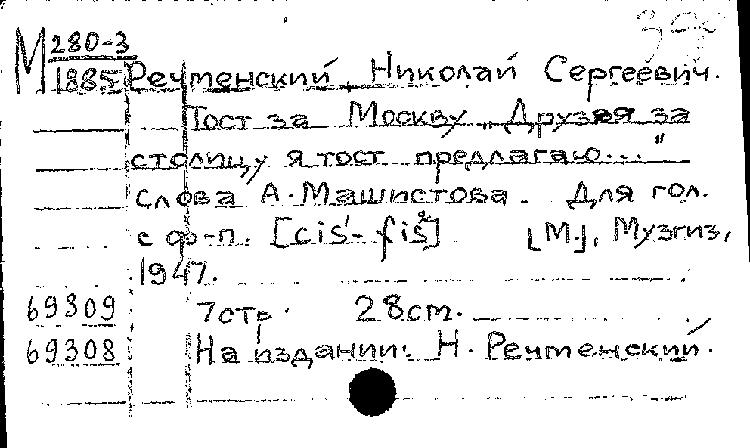 М 280-3
1885 Речменский, Николай Сергеевич.
Тост за Москву „Друзья за
столицу я тост предлагаю..."
слова А. Машистова. Для гол.
с ф-п. [cis'-fis²] [М.], Музгиз,
1947.
69309 7стр. 28см.
69308 На издании: Н. Речменский.